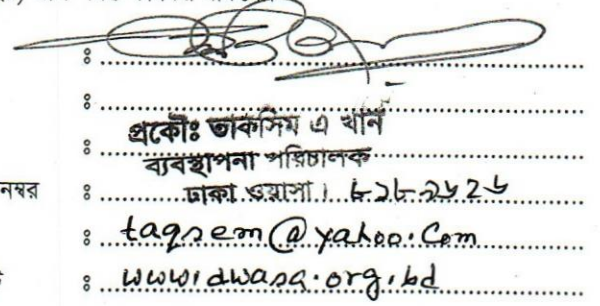 প্রকৌঃ তাকসিম এ খান
ব্যবস্থাপনা পরিচালক
নম্বর : ঢাকা ওয়াসা। ৮১৮৯৬২৬
: taqsem@yahoo.com
: www.dwasa.org.bd